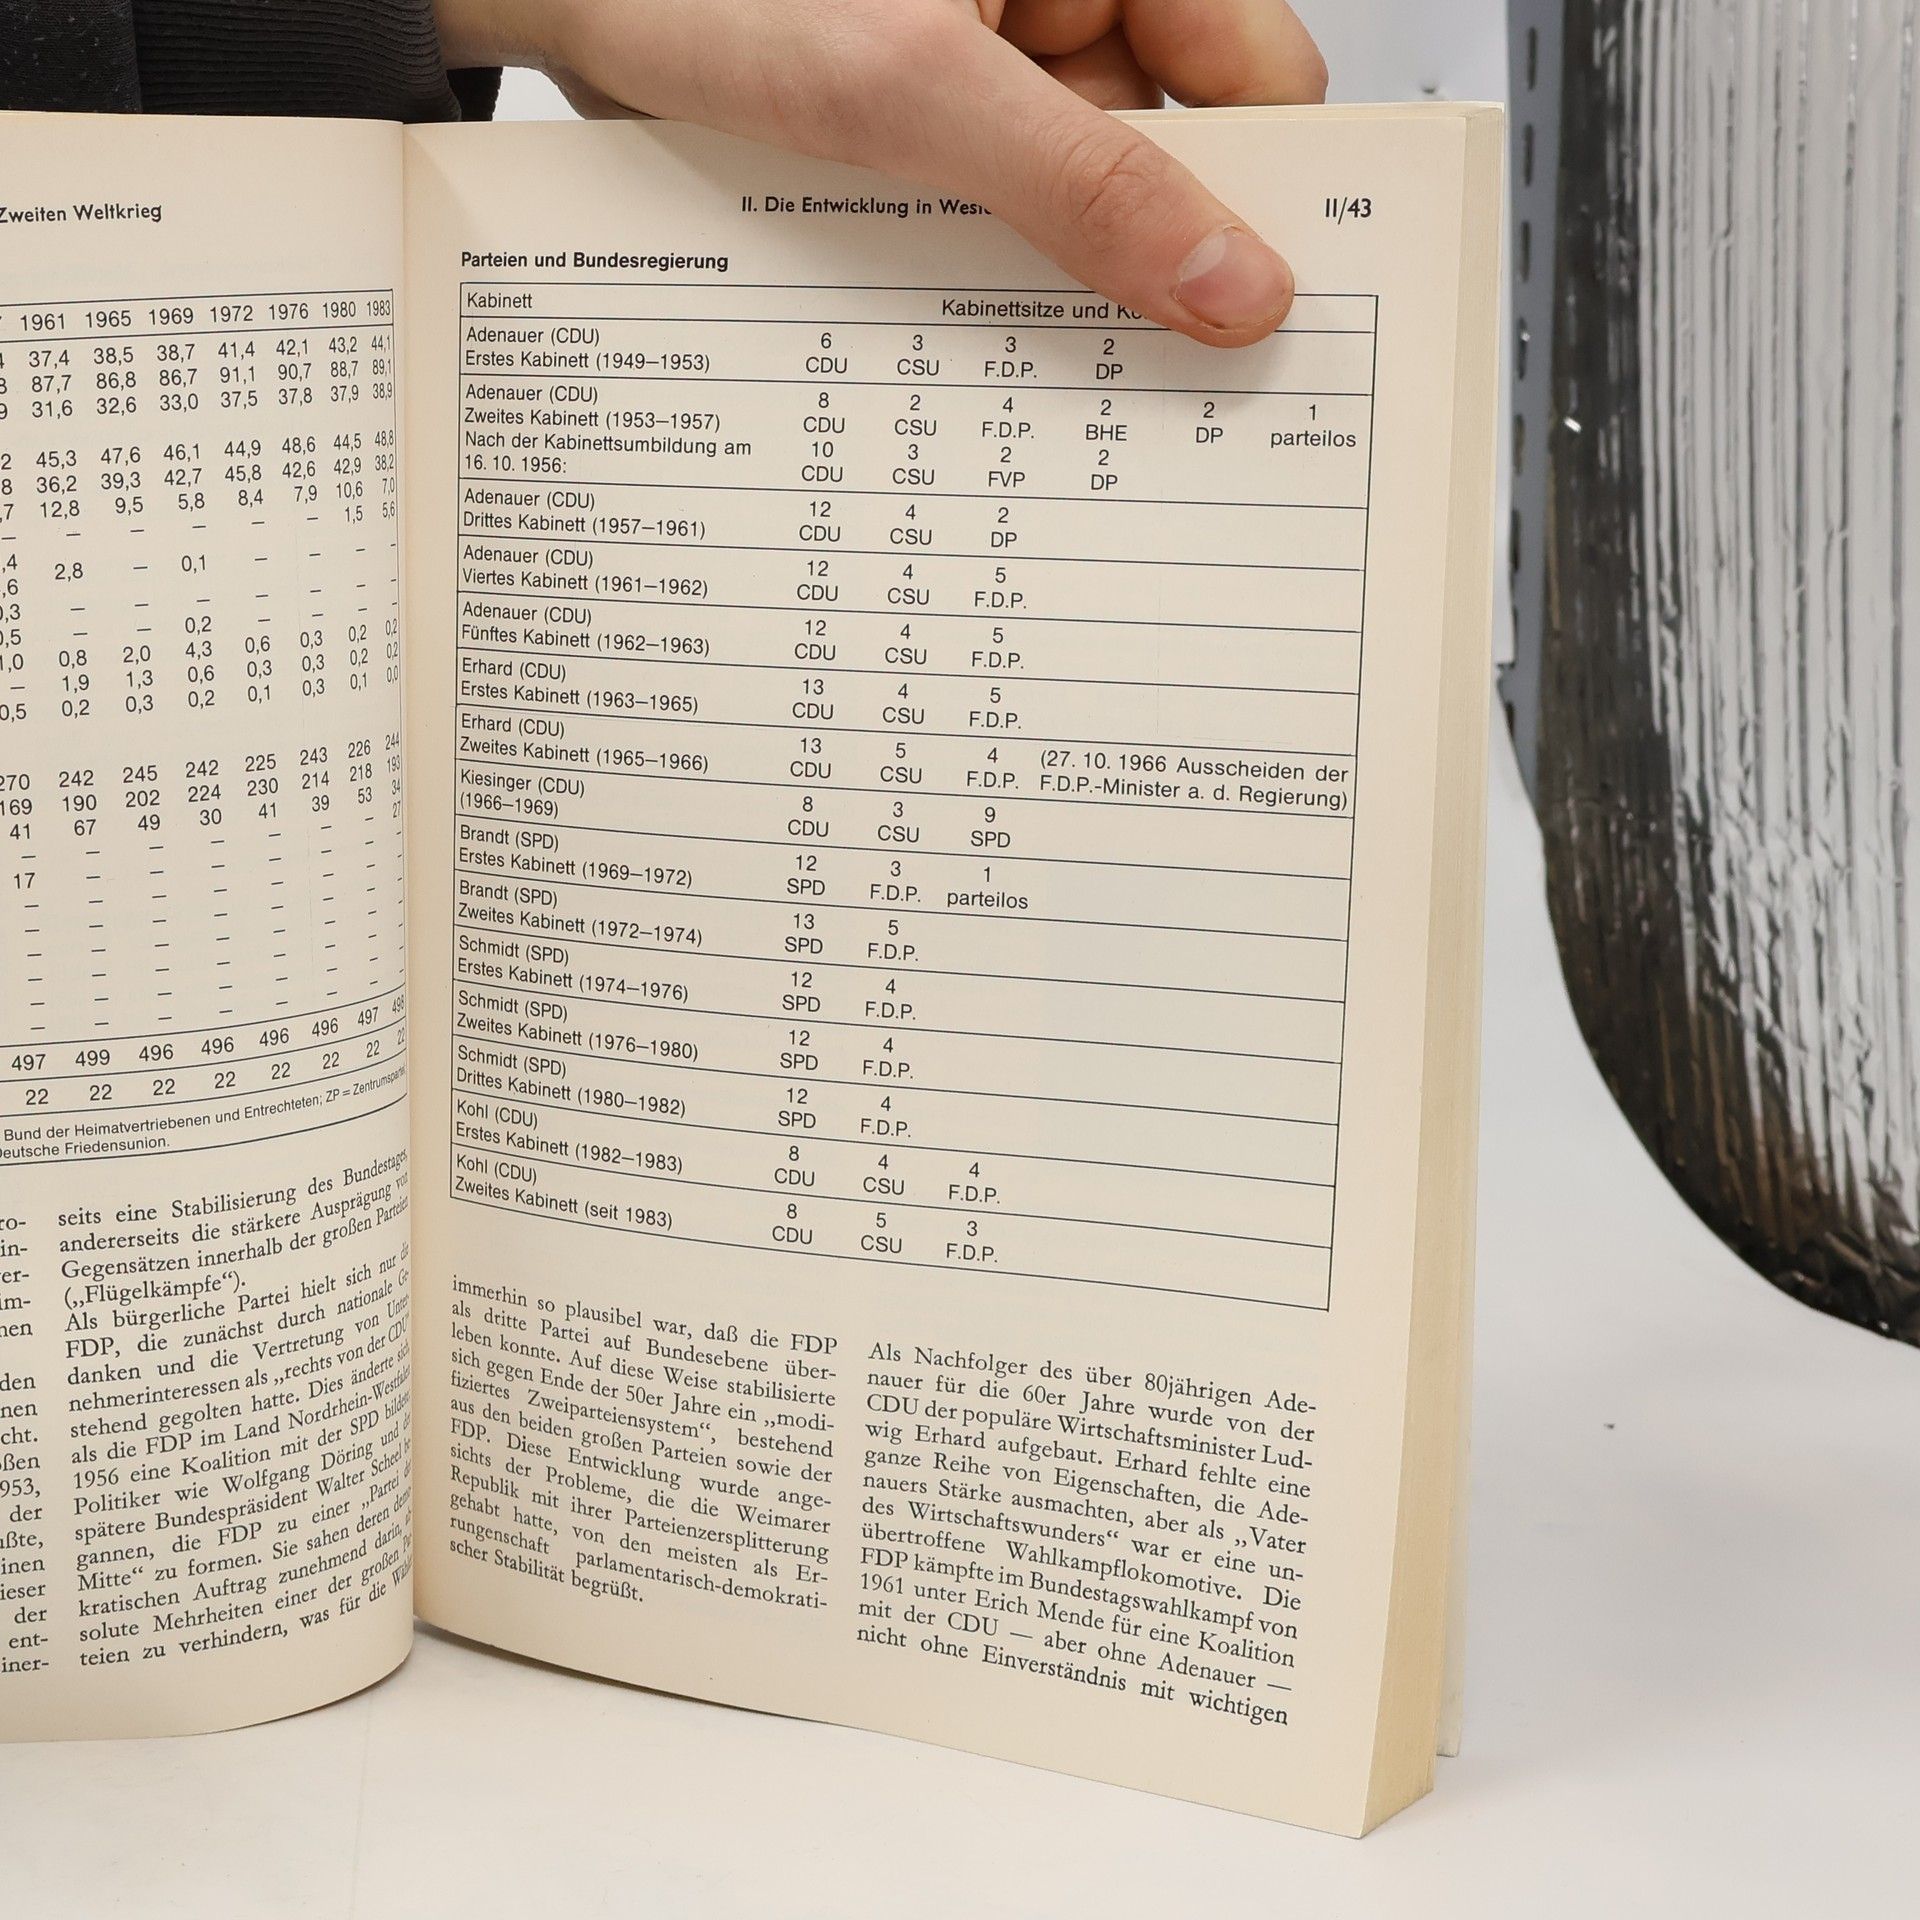 Zweiten Weltkrieg
1961 1965 1969 1972 1976 1980 1983
37,4 38,5 38,7 41,4 42,1 43,2 44,1
87,7 86,8 86,7 91,1 90,7 88,7 89,1
31,6 32,6 33,0 37,5 37,8 37,9 38,9
45,3 47,6 46,1 44,9 48,6 44,5 48,8
36,2 39,3 42,7 45,8 42,6 42,9 38,2
,7 12,8 9,5 5,8 8,4 7,9 10,6 7,0
— — — — — — 1,5 5,6
,4 2,8 — 0,1 — — — —
,6
0,3 — — — — — — —
0,5 — — 0,2 — — — —
1,0 0,8 2,0 4,3 0,6 0,3 0,2 0,2
— 1,9 1,3 0,6 0,3 0,3 0,2 0,2
0,5 0,2 0,3 0,2 0,1 0,3 0,1 0,0
270 242 245 242 225 243 226 244
169 190 202 224 230 214 218 193
41 67 49 30 41 39 53 34
— — — — — — — 27
17 — — — — — — —
— — — — — — — —
— — — — — — — —
— — — — — — — —
— — — — — — — —
— — — — — — — —
— — — — — — — —
497 499 496 496 496 496 497 498
22 22 22 22 22 22 22 22
Bund der Heimatvertriebenen und Entrechteten; ZP = Zentrumspartei
Deutsche Friedensunion.
ro-
in-
ver-
im-
nen
den
nen
cht.
ßen
953,
der
ußte,
inen
ieser
der
ent-
iner-
seits eine Stabilisierung des Bundestages,
andererseits die stärkere Ausprägung von
Gegensätzen innerhalb der großen Parteien
(„Flügelkämpfe“).
Als bürgerliche Partei hielt sich nur die
FDP, die zunächst durch nationale Ge-
danken und die Vertretung von Unter-
nehmerinteressen als „rechts von der CDU“
stehend gegolten hatte. Dies änderte sich,
als die FDP im Land Nordrhein-Westfalen
1956 eine Koalition mit der SPD bildete.
Politiker wie Wolfgang Döring und der
spätere Bundespräsident Walter Scheel be-
gannen, die FDP zu einer „Partei der
Mitte“ zu formen. Sie sahen deren demo-
kratischen Auftrag zunehmend darin, ab-
solute Mehrheiten einer der großen Par-
teien zu verhindern, was für die Wähler
II. Die Entwicklung in West
II/43
Parteien und Bundesregierung
Kabinett Kabinettsitze und Ko
Adenauer (CDU) 6 3 3 2
Erstes Kabinett (1949–1953) CDU CSU F.D.P. DP
Adenauer (CDU) 8 2 4 2 2 1
Zweites Kabinett (1953–1957) CDU CSU F.D.P. BHE DP parteilos
Nach der Kabinettsumbildung am 10 3 2 2
16. 10. 1956: CDU CSU FVP DP
Adenauer (CDU) 12 4 2
Drittes Kabinett (1957–1961) CDU CSU DP
Adenauer (CDU) 12 4 5
Viertes Kabinett (1961–1962) CDU CSU F.D.P.
Adenauer (CDU) 12 4 5
Fünftes Kabinett (1962–1963) CDU CSU F.D.P.
Erhard (CDU) 13 4 5
Erstes Kabinett (1963–1965) CDU CSU F.D.P.
Erhard (CDU) 13 5 4 (27. 10. 1966 Ausscheiden der
Zweites Kabinett (1965–1966) CDU CSU F.D.P. F.D.P.-Minister a. d. Regierung)
Kiesinger (CDU) 8 3 9
(1966–1969) CDU CSU SPD
Brandt (SPD) 12 3 1
Erstes Kabinett (1969–1972) SPD F.D.P. parteilos
Brandt (SPD) 13 5
Zweites Kabinett (1972–1974) SPD F.D.P.
Schmidt (SPD) 12 4
Erstes Kabinett (1974–1976) SPD F.D.P.
Schmidt (SPD) 12 4
Zweites Kabinett (1976–1980) SPD F.D.P.
Schmidt (SPD) 12 4
Drittes Kabinett (1980–1982) SPD F.D.P.
Kohl (CDU) 8 4 4
Erstes Kabinett (1982–1983) CDU CSU F.D.P.
Kohl (CDU) 8 5 3
Zweites Kabinett (seit 1983) CDU CSU F.D.P.
immerhin so plausibel war, daß die FDP
als dritte Partei auf Bundesebene über-
leben konnte. Auf diese Weise stabilisierte
sich gegen Ende der 50er Jahre ein „modi-
fiziertes Zweiparteiensystem“, bestehend
aus den beiden großen Parteien sowie der
FDP. Diese Entwicklung wurde ange-
sichts der Probleme, die die Weimarer
Republik mit ihrer Parteienzersplitterung
gehabt hatte, von den meisten als Er-
rungenschaft parlamentarisch-demokrati-
scher Stabilität begrüßt.
Als Nachfolger des über 80jährigen Ade-
nauer für die 60er Jahre wurde von der
CDU der populäre Wirtschaftsminister Lud-
wig Erhard aufgebaut. Erhard fehlte eine
ganze Reihe von Eigenschaften, die Ade-
nauers Stärke ausmachten, aber als „Vater
des Wirtschaftswunders“ war er eine un-
übertroffene Wahlkampflokomotive. Die
FDP kämpfte im Bundestagswahlkampf von
1961 unter Erich Mende für eine Koalition
mit der CDU — aber ohne Adenauer —
nicht ohne Einverständnis mit wichtigen